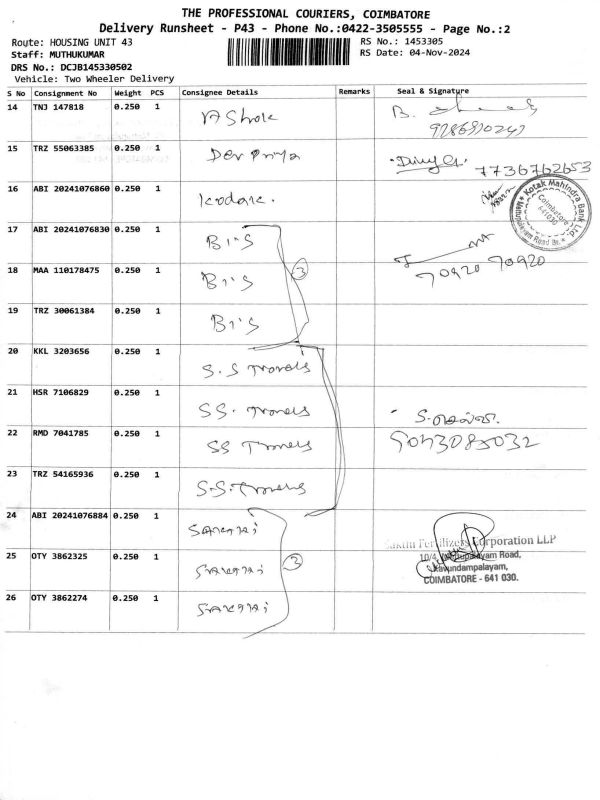 THE PROFESSIONAL COURIERS, COIMBATORE
Delivery Runsheet - P43 - Phone No.:0422-3505555 - Page No.:2
Route: HOUSING UNIT 43
RS No.: 1453305
Staff: MUTHUKUMAR
RS Date: 04-Nov-2024
DRS No.: DCJB145330502
Vehicle: Two Wheeler Delivery
S No Consignment No Weight PCS Consignee Details Remarks Seal & Signature
14 TNJ 147818 0.250 1 Ashok B.
15 TRZ 55063385 0.250 1 Devpriya 7736762653
16 ABI 20241076860 0.250 1 kodak.
Kotak Mahindra Bank Ltd.
Coimbatore
641030
Road Br.
17 ABI 20241076830 0.250 1 BI'S
18 MAA 110178475 0.250 1 BI'S 3 70920 70920
19 TRZ 30061384 0.250 1 BI'S
20 KKL 3203656 0.250 1 S.S Travels
21 HSR 7106829 0.250 1 SS. Travels
22 RMD 7041785 0.250 1 SS Travels
23 TRZ 54165936 0.250 1 S.S. Travels
24 ABI 20241076884 0.250 1 Sakthi
Sakthi Fertilizers Corporation LLP
25 OTY 3862325 0.250 1 Sakthi 3
10/4, Road,
Kavundampalayam,
COIMBATORE - 641 030.
26 OTY 3862274 0.250 1 Sakthi